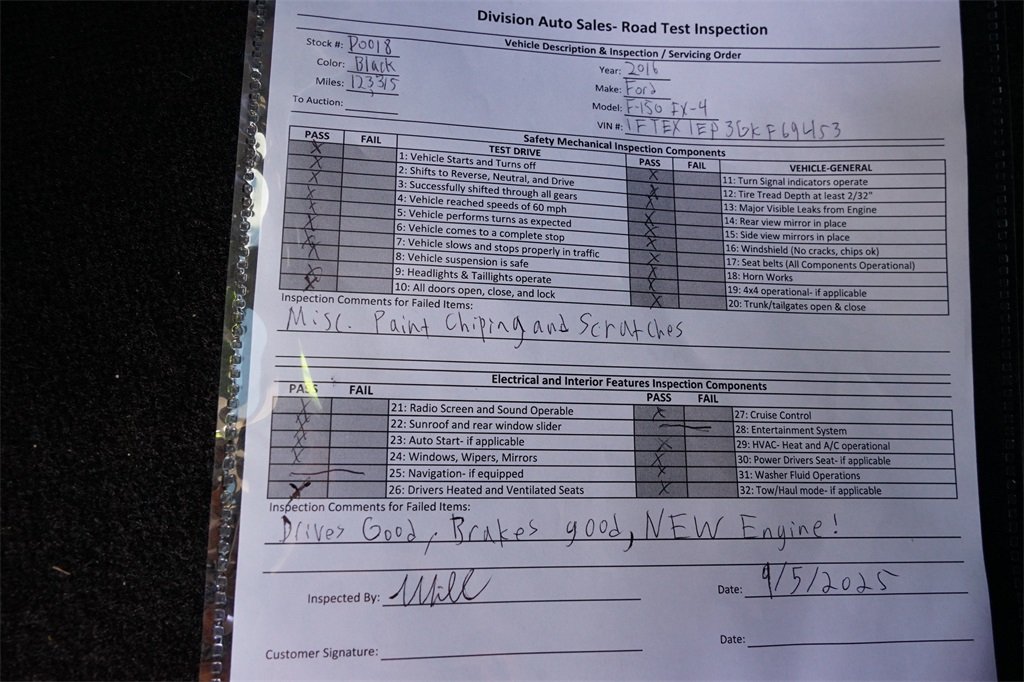 Division Auto Sales- Road Test Inspection
Vehicle Description & Inspection / Servicing Order
Stock #: P0018
Color: Black
Miles: 123,315
To Auction:
Year: 2016
Make: Ford
Model: F-150 FX-4
VIN #: 1FTEX1EP3GKF69453
Safety Mechanical Inspection Components
PASS FAIL TEST DRIVE
1: Vehicle Starts and Turns off
2: Shifts to Reverse, Neutral, and Drive
3: Successfully shifted through all gears
4: Vehicle reached speeds of 60 mph
5: Vehicle performs turns as expected
6: Vehicle comes to a complete stop
7: Vehicle slows and stops properly in traffic
8: Vehicle suspension is safe
9: Headlights & Taillights operate
10: All doors open, close, and lock
PASS FAIL VEHICLE-GENERAL
11: Turn Signal indicators operate
12: Tire Tread Depth at least 2/32"
13: Major Visible Leaks from Engine
14: Rear view mirror in place
15: Side view mirrors in place
16: Windshield (No cracks, chips ok)
17: Seat belts (All Components Operational)
18: Horn Works
19: 4x4 operational- if applicable
20: Trunk/tailgates open & close
Inspection Comments for Failed Items:
Misc. Paint Chiping and Scratches
Electrical and Interior Features Inspection Components
PASS FAIL
21: Radio Screen and Sound Operable
22: Sunroof and rear window slider
23: Auto Start- if applicable
24: Windows, Wipers, Mirrors
25: Navigation- if equipped
26: Drivers Heated and Ventilated Seats
PASS FAIL
27: Cruise Control
28: Entertainment System
29: HVAC- Heat and A/C operational
30: Power Drivers Seat- if applicable
31: Washer Fluid Operations
32: Tow/Haul mode- if applicable
Inspection Comments for Failed Items:
Drives Good, Brakes good, NEW Engine!
Inspected By: Will
Date: 9/5/2025
Customer Signature:
Date: